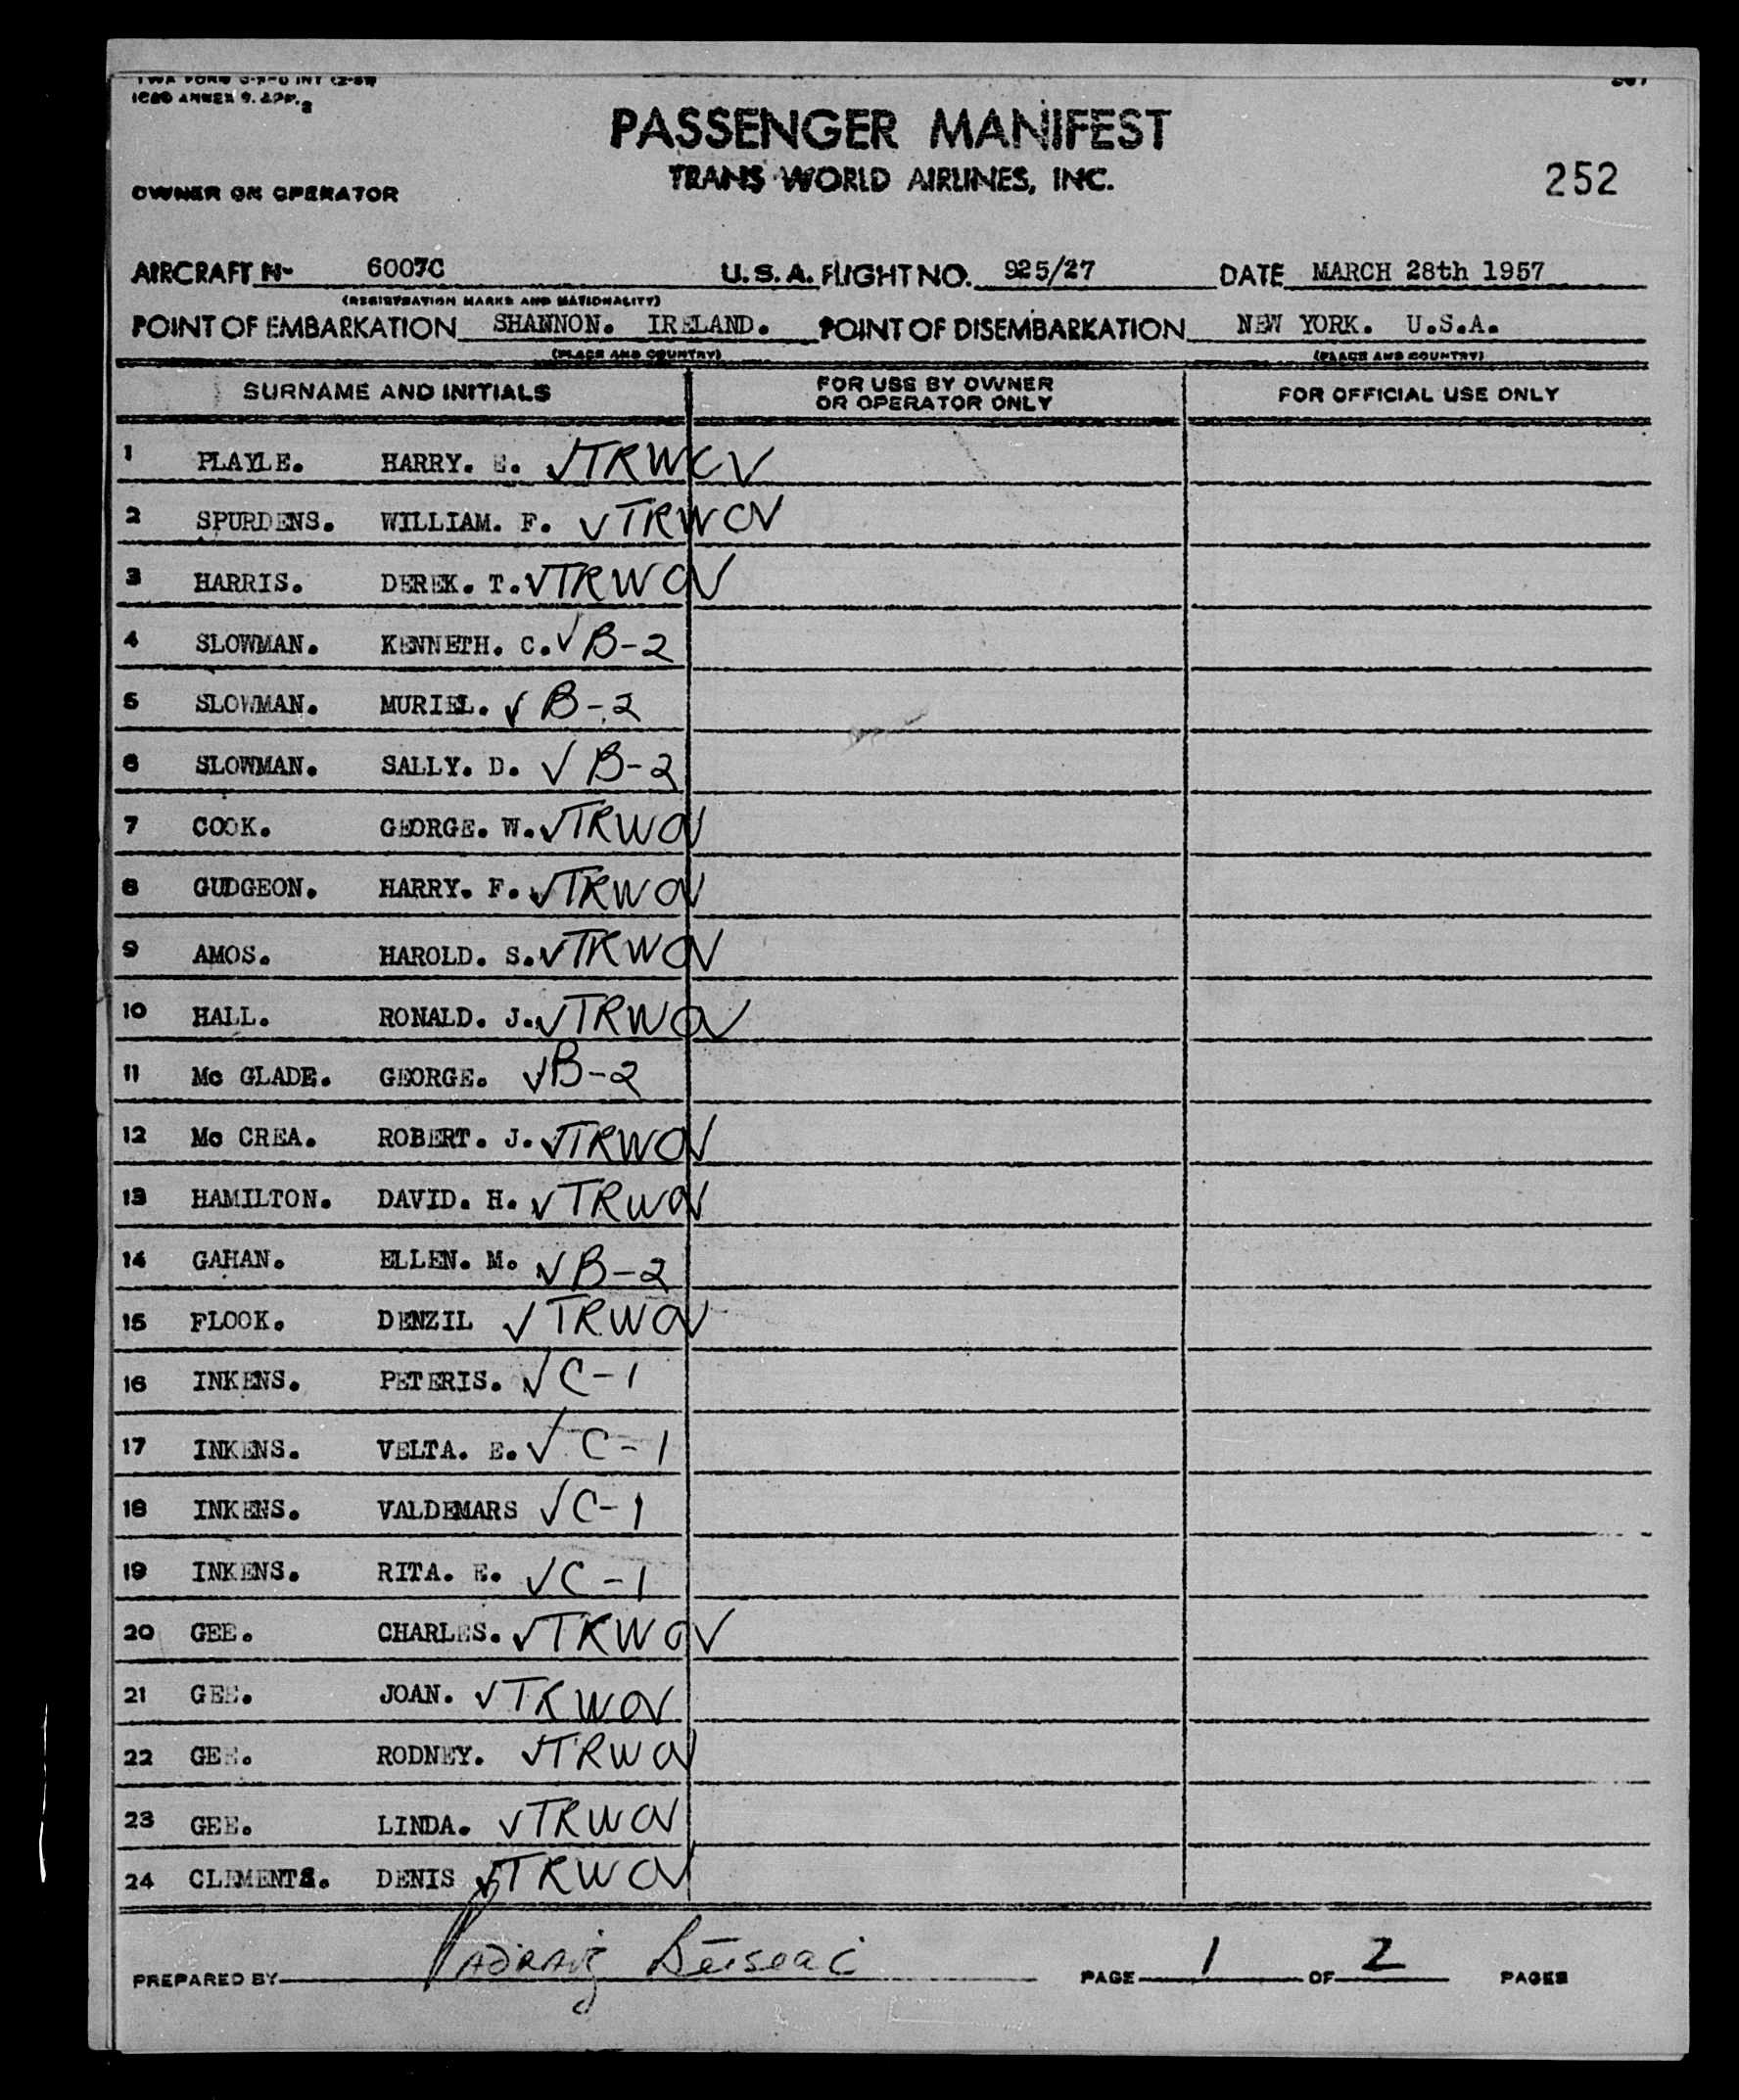 TWA FORM INT
ICAO ANNEX 9. APP. 2
PASSENGER MANIFEST
TRANS WORLD AIRLINES, INC.
252
OWNER OR OPERATOR
AIRCRAFT N- 6007C U.S.A. FLIGHT NO. 925/27 DATE MARCH 28th 1957
(REGISTRATION MARKS AND NATIONALITY)
POINT OF EMBARKATION SHANNON. IRELAND. POINT OF DISEMBARKATION NEW YORK. U.S.A.
(PLACE AND COUNTRY) (PLACE AND COUNTRY)
SURNAME AND INITIALS FOR USE BY OWNER OR OPERATOR ONLY FOR OFFICIAL USE ONLY
1 PLAYLE. HARRY. E. √TRWC√
2 SPURDENS. WILLIAM. F. √TRWC√
3 HARRIS. DEREK. T. √TRWC√
4 SLOWMAN. KENNETH. C. √B-2
5 SLOWMAN. MURIEL. √B-2
6 SLOWMAN. SALLY. D. √B-2
7 COOK. GEORGE. W. √TRWC√
8 GUDGEON. HARRY. F. √TRWC√
9 AMOS. HAROLD. S. √TRWC√
10 HALL. RONALD. J. √TRWC√
11 Mc GLADE. GEORGE. √B-2
12 Mc CREA. ROBERT. J. √TRWC√
13 HAMILTON. DAVID. H. √TRWC√
14 GAHAN. ELLEN. M. √B-2
15 FLOOK. DENZIL √TRWC√
16 INKENS. PETERIS. √C-1
17 INKENS. VELTA. E. √C-1
18 INKENS. VALDEMARS √C-1
19 INKENS. RITA. E. √C-1
20 GEE. CHARLES. √TRWC√
21 GEE. JOAN. √TRWC√
22 GEE. RODNEY. √TRWC√
23 GEE. LINDA. √TRWC√
24 CLEMENTS. DENIS √TRWC√
PREPARED BY PAGE 1 OF 2 PAGES